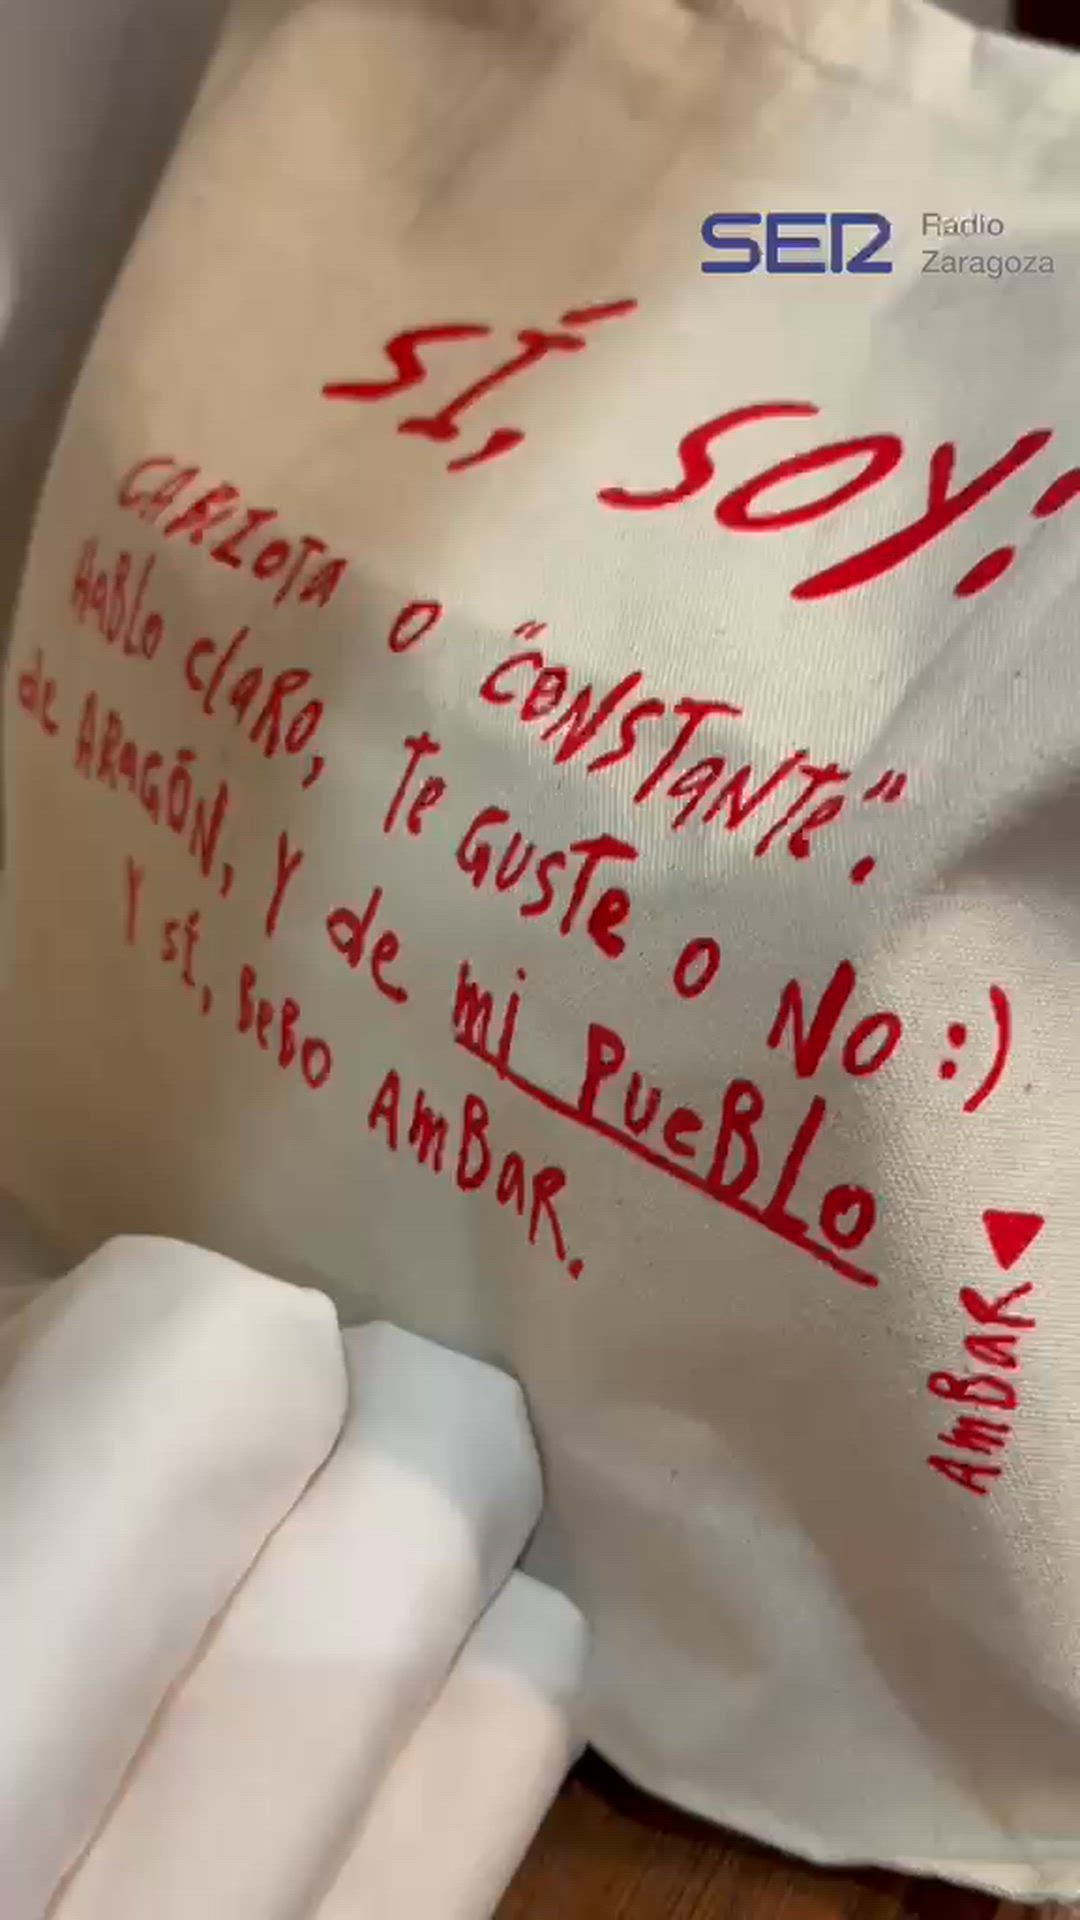 SER Radio
Zaragoza
SÍ, SOY:
CABEZOTA o "CONSTANTE".
HaBLo CLaRo, Te GUSTe o No :)
de ARaGÓN, Y de mi PueBLo
Y sí, BeBo AmBaR.
AmBaR